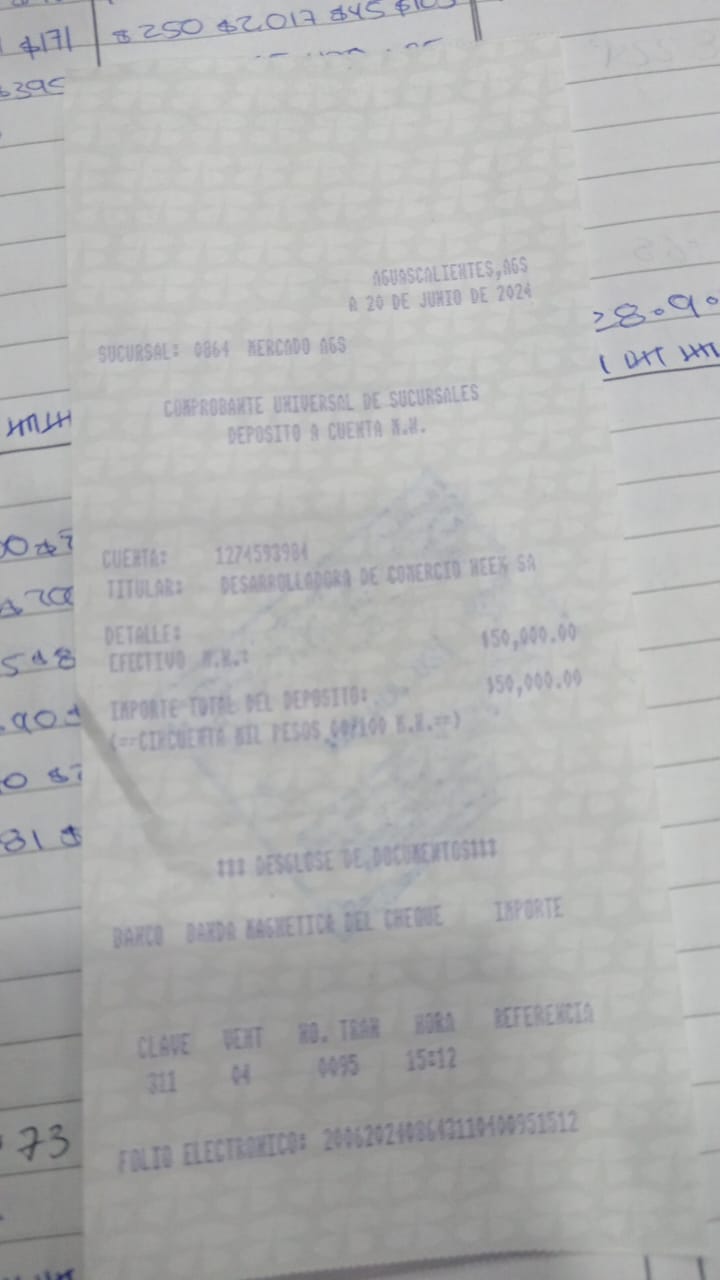 $171 $250 $2.017 $45
$395
AGUASCALIENTES,AGS
A 20 DE JUNIO DE 2024
SUCURSAL: 0864 MERCADO AGS
COMPROBANTE UNIVERSAL DE SUCURSALES
DEPOSITO A CUENTA M.N.
CUENTA: 1274593984
TITULAR: DESARROLLADORA DE COMERCIO WEEX SA
DETALLE:
EFECTIVO M.N.: $50,000.00
IMPORTE TOTAL DEL DEPOSITO: $50,000.00
(==CINCUENTA MIL PESOS 00/100 M.N.==)
*** DESGLOSE DE DOCUMENTOS***
BANCO BANDA MAGNETICA DEL CHEQUE IMPORTE
CLAVE VENT NO. TRAN HORA REFERENCIA
311 04 0095 15:12
73
FOLIO ELECTRONICO: 2006202408643110400951512